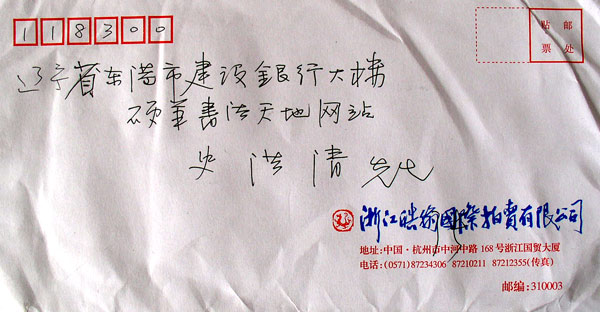 118300
贴 邮
票 处
辽宁省东港市建设銀行大楼
硕華書法天地网站
史洪清 先生
浙江皓翰國際拍賣有限公司
地址:中国·杭州市中河中路 168 号浙江国贸大厦
电话:(0571)87234306 87210211 87212355(传真)
邮编:310003